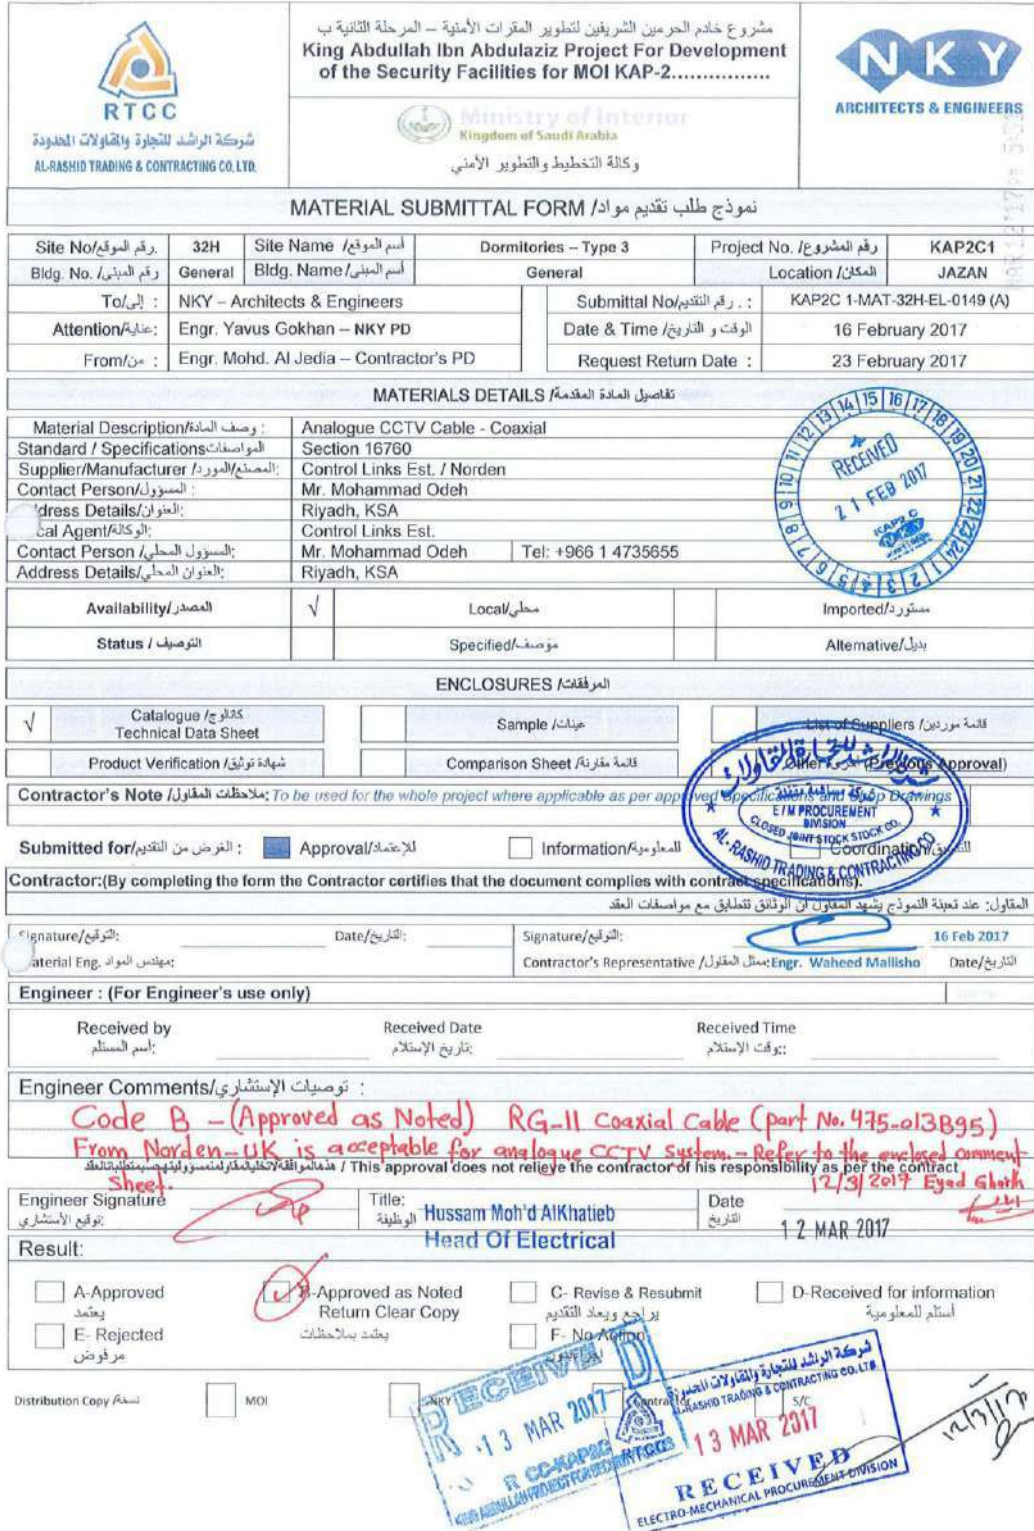 RTCC
شركة الراشد للتجارة والمقاولات المحدودة
AL-RASHID TRADING & CONTRACTING CO. LTD.
مشروع خادم الحرمين الشريفين لتطوير المقرات الأمنية – المرحلة الثانية ب
King Abdullah Ibn Abdulaziz Project For Development
of the Security Facilities for MOI KAP-2................
Ministry of Interior
Kingdom of Saudi Arabia
وكالة التخطيط والتطوير الأمني
NKY
ARCHITECTS & ENGINEERS
MATERIAL SUBMITTAL FORM /نموذج طلب تقديم مواد
Site No/رقم الموقع. 32H Site Name /أسم الموقع Dormitories – Type 3 Project No. /رقم المشروع KAP2C1
Bldg. No. /رقم المبنى General Bldg. Name/أسم المبنى General Location /المكان JAZAN
To/إلى : NKY – Architects & Engineers Submittal No/رقم التقديم . : KAP2C 1-MAT-32H-EL-0149 (A)
Attention/عناية: Engr. Yavus Gokhan – NKY PD Date & Time /الوقت و التاريخ 16 February 2017
From/من : Engr. Mohd. Al Jedia – Contractor's PD Request Return Date : 23 February 2017
MATERIALS DETAILS /تفاصيل المادة المقدمة
Material Description/وصف المادة : Analogue CCTV Cable - Coaxial
Standard / Specificationsالمواصفات Section 16760
Supplier/Manufacturer /المصنع/المورد: Control Links Est. / Norden
Contact Person/المسؤول : Mr. Mohammad Odeh
dress Details/العنوان: Riyadh, KSA
cal Agent/الوكالة: Control Links Est.
Contact Person /المسؤول المحلي: Mr. Mohammad Odeh Tel: +966 1 4735655
Address Details/العنوان المحلي: Riyadh, KSA
RECEIVED
21 FEB 2017
KAP2 C
Availability/المصدر √ Local/محلي Imported/مستورد
Status / التوصيف Specified/موصف Alternative/بديل
ENCLOSURES /المرفقات
√ Catalogue /كتالوج
Technical Data Sheet
Sample /عينات List of Suppliers /قائمة موردين
Product Verification /شهادة توثيق Comparison Sheet /قائمة مقارنة Other /أخرى (Previous Approval)
Contractor's Note /ملاحظات المقاول: To be used for the whole project where applicable as per approved Specifications and Shop Drawings
E/M PROCUREMENT
DIVISION
CLOSED JOINT STOCK STOCK CO.
AL-RASHID TRADING & CONTRACTING CO
Submitted for/الغرض من التقديم : Approval/للإعتماد Information/للمعلومية Coordination/للتنسيق
Contractor:(By completing the form the Contractor certifies that the document complies with contract specifications).
المقاول: عند تعبئة النموذج يشهد المقاول أن الوثائق تتطابق مع مواصفات العقد
Signature/التوقيع: Date/التاريخ: Signature/التوقيع: 16 Feb 2017
aterial Eng. مهندس المواد: Contractor's Representative /ممثل المقاول:Engr. Waheed Mallisho Date/التاريخ
Engineer : (For Engineer's use only)
Received by Received Date Received Time
أسم المستلم: تاريخ الإستلام: وقت الإستلام::
Engineer Comments/توصيات الإستشاري :
Code B – (Approved as Noted) RG-11 Coaxial Cable (part No. 475-013B95)
From Norden-UK is acceptable for analogue CCTV system. – Refer to the enclosed comment
/ This approval does not relieve the contractor of his responsibility as per the contract
sheet. 12/3/2017 Eyad Gharib
Engineer Signature Title: Hussam Moh'd AlKhatieb Date
توقيع الأستشاري: الوظيفة Head Of Electrical التاريخ 12 MAR 2017
Result:
A-Approved B-Approved as Noted C- Revise & Resubmit D-Received for information
يعتمد Return Clear Copy يراجع ويعاد التقديم أستلم للمعلومية
E- Rejected يعتمد بملاحظات F- No Action
مرفوض
Distribution Copy /نسخة MOI NKY Contractor S/C
RECEIVED
13 MAR 2017
R CC-KAP2C
شركة الراشد للتجارة والمقاولات المحدودة
AL-RASHID TRADING & CONTRACTING CO. LTD.
RTCC
13 MAR 2017
RECEIVED
ELECTRO-MECHANICAL PROCUREMENT DIVISION
12/3/17